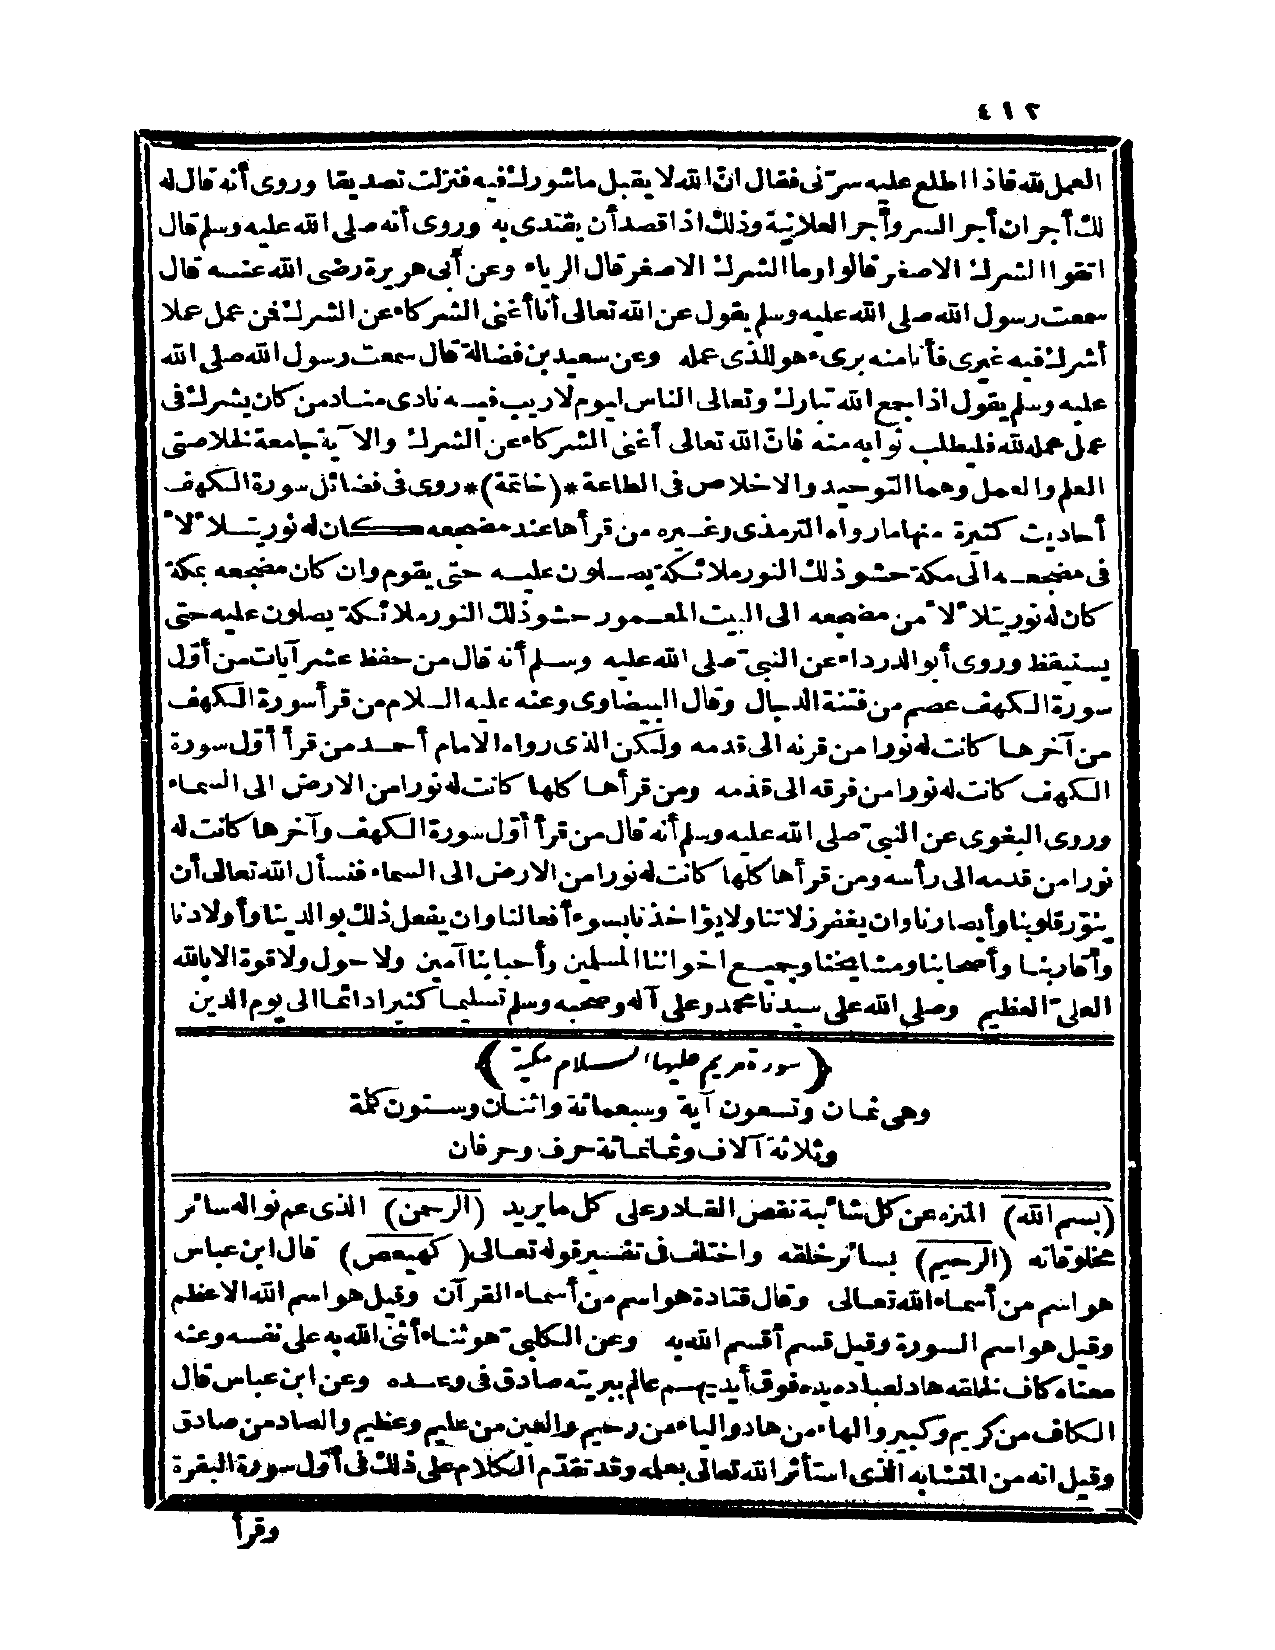 ٤١٢
العمل لله فاذا اطلع عليه سرّنى فقال انّ الله لا يقبل ما شورك فيه فنزلت تصديقا وروى أنه قال له
لك أجران أجر السر وأجر العلانية وذلك اذا قصد أن يقتدى به وروى أنه صلى الله عليه وسلم قال
اتقوا الشرك الاصغر قالوا وما الشرك الاصغر قال الرياء وعن أبى هريرة رضى الله عنه قال
سمعت رسول الله صلى الله عليه وسلم يقول عن الله تعالى أنا أغنى الشركاء عن الشرك فمن عمل عملا
أشرك فيه غيرى فأنا منه برىء هو للذى عمله وعن سعيد بن فضالة قال سمعت رسول الله صلى الله
عليه وسلم يقول اذا جمع الله تبارك وتعالى الناس ليوم لا ريب فيه نادى مناد من كان يشرك فى
عمل عمله لله فليطلب ثوابه منه فانّ الله تعالى أغنى الشركاء عن الشرك والآية جامعة لخلاصتى
العلم والعمل وهما التوحيد والاخلاص فى الطاعة *(خاتمة)* روى فى فضائل سورة الكهف
أحاديث كثيرة منها ما رواه الترمذى وغيره من قرأها عند مضجعه كان له نور يتلألأ
فى مضجعه الى مكة حشو ذلك النور ملائكة يصلون عليه حتى يقوم وان كان مضجعه بمكة
كان له نور يتلألأ من مضجعه الى البيت المعمور حشو ذلك النور ملائكة يصلون عليه حتى
يستيقظ وروى أبو الدرداء عن النبىّ صلى الله عليه وسلم أنه قال من حفظ عشر آيات من أوّل
سورة الكهف عصم من فتنة الدجال وقال البيضاوى وعنه عليه السلام من قرأ سورة الكهف
من آخرها كانت له نورا من قرنه الى قدمه ولكن الذى رواه الامام أحمد من قرأ أوّل سورة
الكهف كانت له نورا من فرقه الى قدمه ومن قرأها كلها كانت له نورا من الارض الى السماء
وروى البغوى عن النبىّ صلى الله عليه وسلم أنه قال من قرأ أوّل سورة الكهف وآخرها كانت له
نورا من قدمه الى رأسه ومن قرأها كلها كانت له نورا من الارض الى السماء فنسأل الله تعالى أن
ينوّر قلوبنا وأبصارنا وان يغفر زلاتنا ولا يؤاخذنا بسوء أفعالنا وان يفعل ذلك بوالدينا وأولادنا
وأقاربنا وأصحابنا ومشايخنا وجميع اخواننا المسلمين وأحبابنا آمين ولا حول ولا قوة الا بالله
العلىّ العظيم وصلى الله على سيدنا محمد وعلى آله وصحبه وسلم تسليما كثيرا دائما الى يوم الدين
﴿سورة مريم عليها السلام مكية﴾
وهى ثمان وتسعون آية وسبعمائة واثنان وستون كلمة
وثلاثة آلاف وثمانمائة حرف وحرفان
(بسم الله) المنزه عن كل شائبة نقص القادر على كل ما يريد (الرحمن) الذى عم نواله سائر
مخلوقاته (الرحيم) بسائر خلقه واختلف فى تفسير قوله تعالى (كهيعص) قال ابن عباس
هو اسم من أسماء الله تعالى وقال قتادة هو اسم من أسماء القرآن وقيل هو اسم الله الاعظم
وقيل هو اسم السورة وقيل قسم أقسم الله به وعن الكلبىّ هو ثناء أثنى الله به على نفسه وعنه
معناه كاف لخلقه هاد لعباده يده فوق أيديهم عالم ببريته صادق فى وعده وعن ابن عباس قال
الكاف من كريم وكبير والهاء من هاد والياء من رحيم والعين من عليم وعظيم والصاد من صادق
وقيل انه من المتشابه الذى استأثر الله تعالى بعلمه وقد تقدّم الكلام على ذلك فى أوّل سورة البقرة
وقرأ